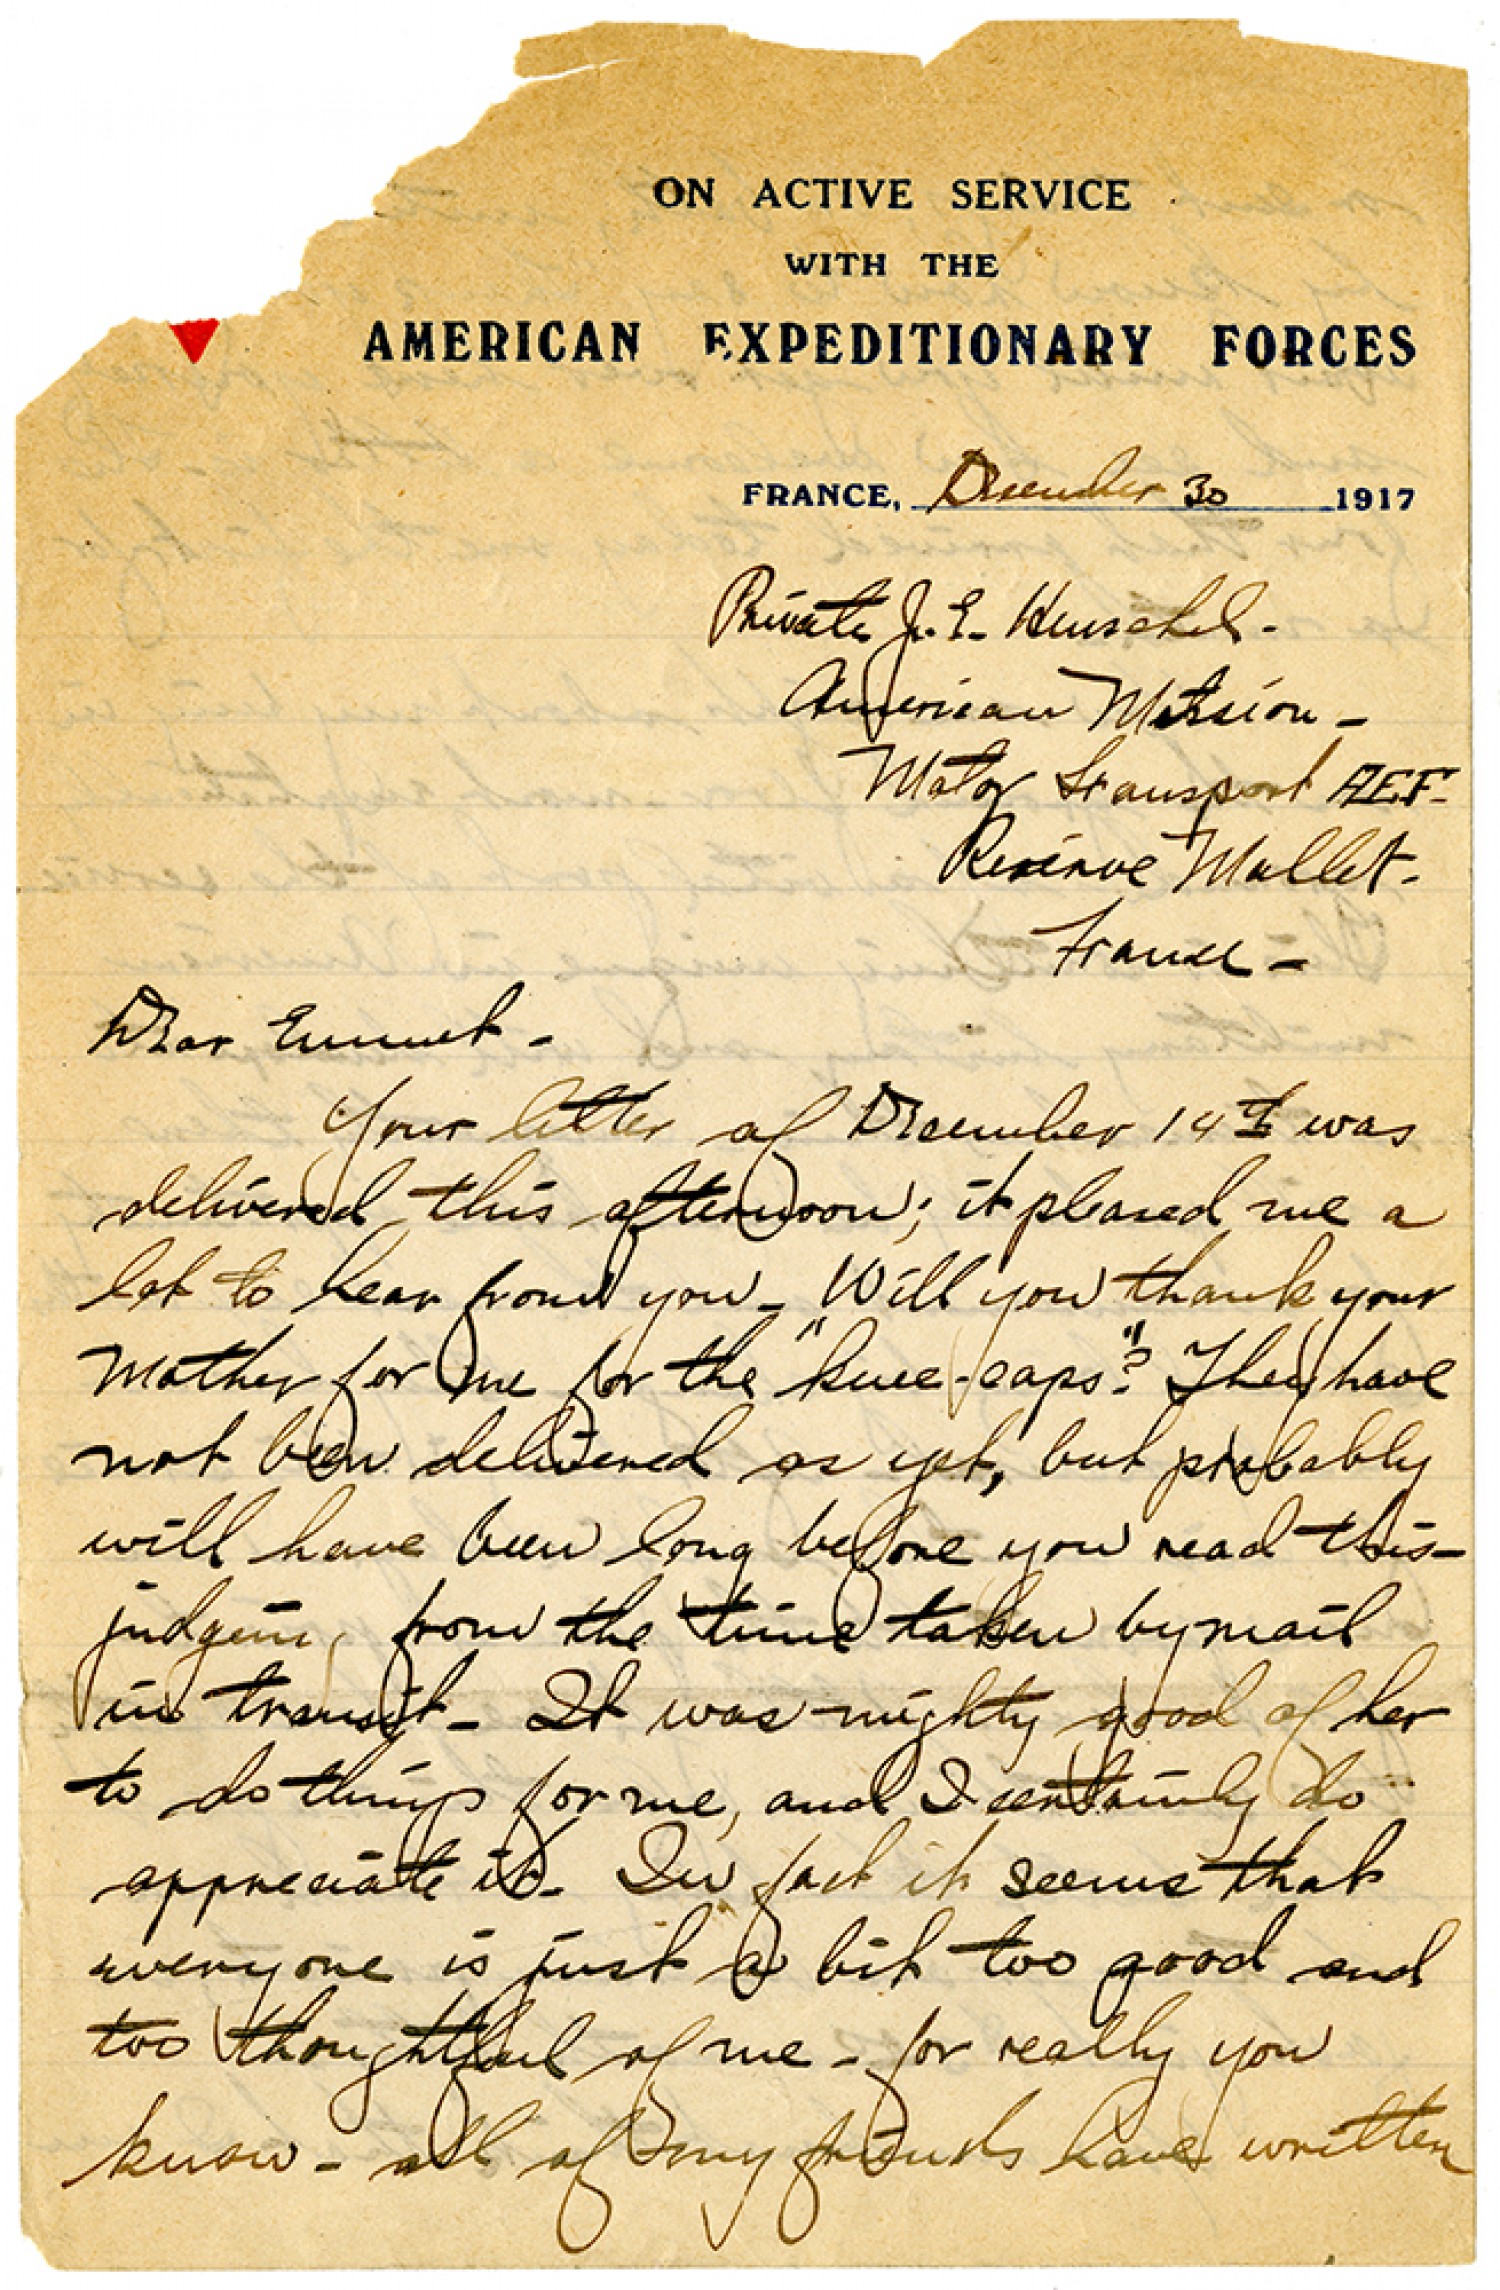 ON ACTIVE SERVICE
WITH THE
AMERICAN EXPEDITIONARY FORCES
FRANCE, December 30 1917
Private J. E. Henschel -
American Mission -
Motor Transport AEF -
Reserve Mallet -
France -
Dear Emmet -
Your letter of December 14th was
delivered this afternoon; it pleased me a
lot to hear from you - Will you thank your
Mother for me for the "knee-caps"? They have
not been delivered as yet, but probably
will have been long before you read this -
judging from the time taken by mail
in transit - It was mighty good of her
to do things for me, and I certainly do
appreciate it - In fact it seems that
everyone is just a bit too good and
too thoughtful of me - for really you
know - all of my friends have written